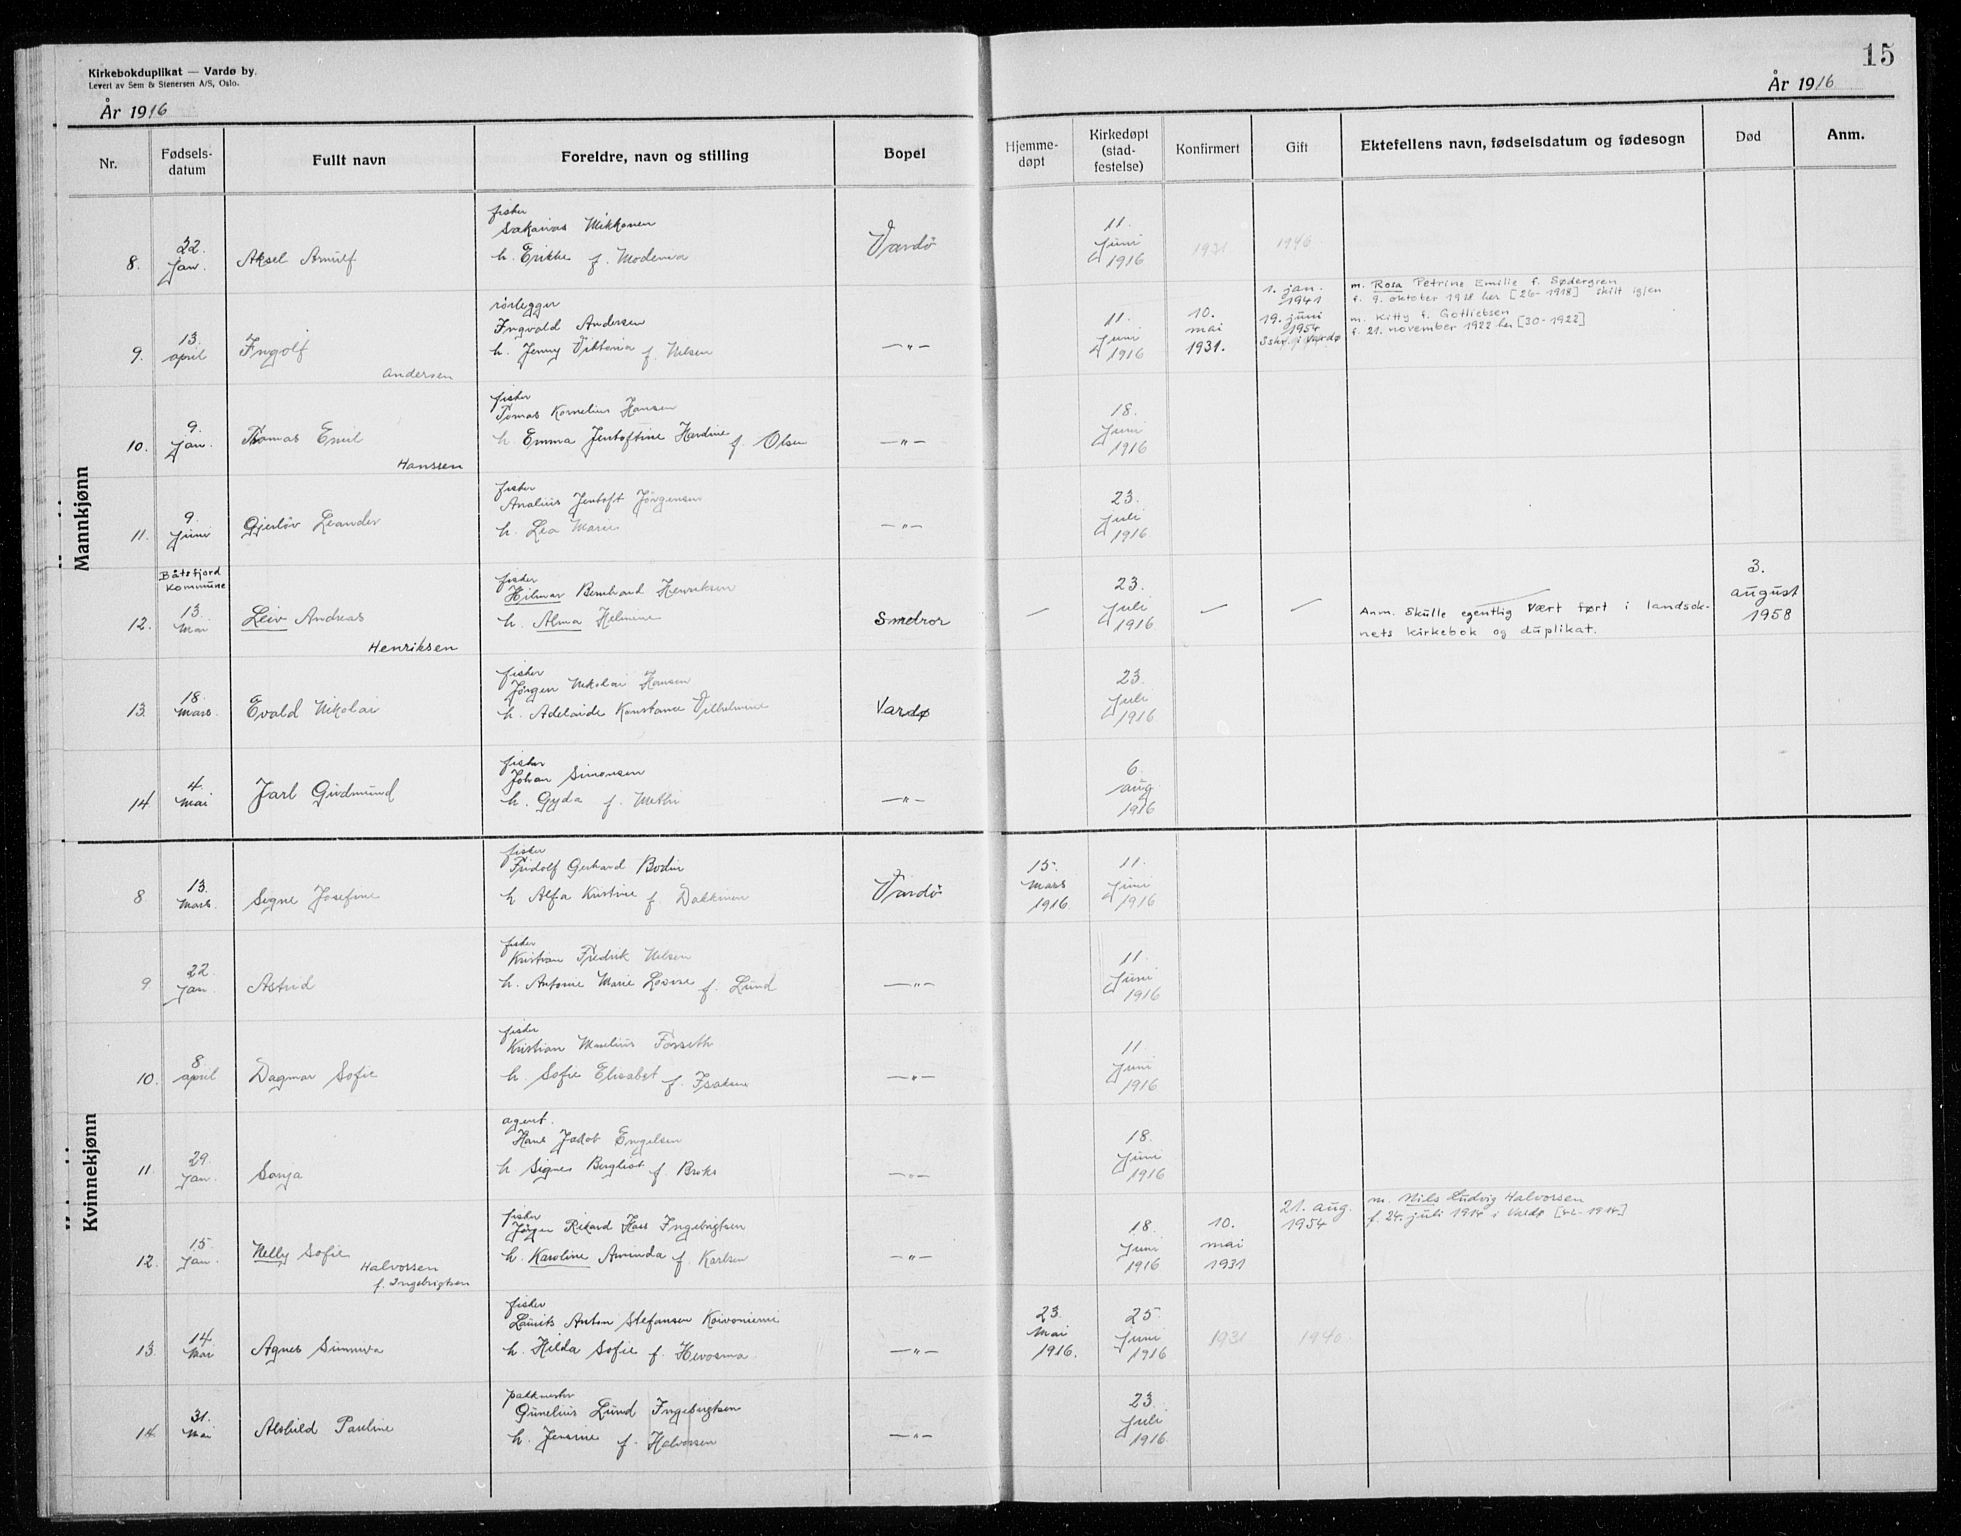 Kirkebokduplikat — Vardø by.
Levert av Sem & Stenersen A/S, Oslo.
15
År 1916
År 1916
Nr.
Fødsels-
datum
Fullt navn
Foreldre, navn og stilling
Bopel
Hjemme-
døpt
Kirkedøpt
(stad-
festelse)
Konfirmert
Gift
Ektefellens navn, fødselsdatum og fødesogn
Død
Anm.
Mannkjønn
8.
22.
Jan.
Aksel Arnulf
fisker
Sakarias Mikkonen
h. Erikke f. Modema
Vardö
11.
Juni
1916
1931
1946
9.
13.
april
Ingolf
Andersen
rörlegger
Ingvald Andersen
h. Jenny Viktoria f. Nilsen
—"—
11.
Juni
1916
10.
mai
1931.
1. jan.
1941
19. juni
1954
i Vardø
m. Rosa Petrine Emilie f. Södergren
f. 9. oktober 1918 her [26-1918] skilt igjen
m. Kitty f. Gotliebsen
f. 21. november 1922 her [30-1922]
10.
9.
Jan.
Tomas Emil
Hanssen
fisker
Tomas Kornelius Hansen
h. Emma Jentoftine Hardine f. Olsen
—"—
18.
Juni
1916
11.
9.
Juni
Gjerlöv Leander
fisker
Analius Jentoft Jörgensen
h. Lea Marie
—"—
23.
Juli
1916
Båtsfjord
Kommune
12.
13.
Mai
Leiv Andreas
Henriksen
fisker
Hilmar Bernhard Henriksen
h. Alma Helmine
Smelror
—
23.
Juli
1916
—
—
Anm. Skulle egentlig vært ført i landsok-
nets kirkebok og duplikat.
3.
august
1958
13.
18.
Mars.
Evald Nikolai
fisker
Jörgen Nikolai Hansen
h. Adelaide Konstance Vilhelmine
Vardø
23.
Juli
1916
14
4.
Mai
Jarl Gudmund
fisker
Johan Simonsen
h. Gyda f. Methi
—"—
6.
aug.
1916
Kvinnekjønn
8
13.
Mars.
Signe Josefine
fisker
Fridolf Gerhard Bodin
h. Alfa Kristine f. Dakkinen
Vardö
15.
Mars
1916
11.
Juni
1916
9
22.
Jan.
Astrid
fisker
Kristian Fredrik Nilsen
h. Antonie Marie Lovise f. Lund
—"—
11.
Juni
1916
10.
8
april
Dagmar Sofie
fisker
Kristian Maselius Forseth
h. Sofie Elisabet f. Isaksen
—"—
11.
Juni
1916
11.
29.
Jan.
Sonja
agent.
Hans Jakob Engelsen
h. Signe Bergliot f. Broks
—"—
18.
Juni
1916
12.
15.
Jan.
Nelly Sofie
Halvorsen
f. Ingebrigtsen
fisker
Jörgen Rikard Hass Ingebrigtsen
h. Karoline Aminda f. Karlsen
—"—
18.
Juni
1916
10.
mai
1931
21. aug.
1954
m. Nils Ludvig Halvorsen
f. 24. juli 1914 i Vardø [42-1914]
13.
14.
Mai
Agnes Sunniva
fisker
Laurits Anton Stefansen Koivoniemi
h. Hilda Sofie f. Hevosma
—"—
23.
Mai
1916.
25.
Juni
1916
1931
1940.
14.
31.
Mai
Alshild Pauline
pakkmester
Gunelius Lund Ingebrigtsen
h. Jensine f. Halvorsen
—"—
23.
Juli
1916